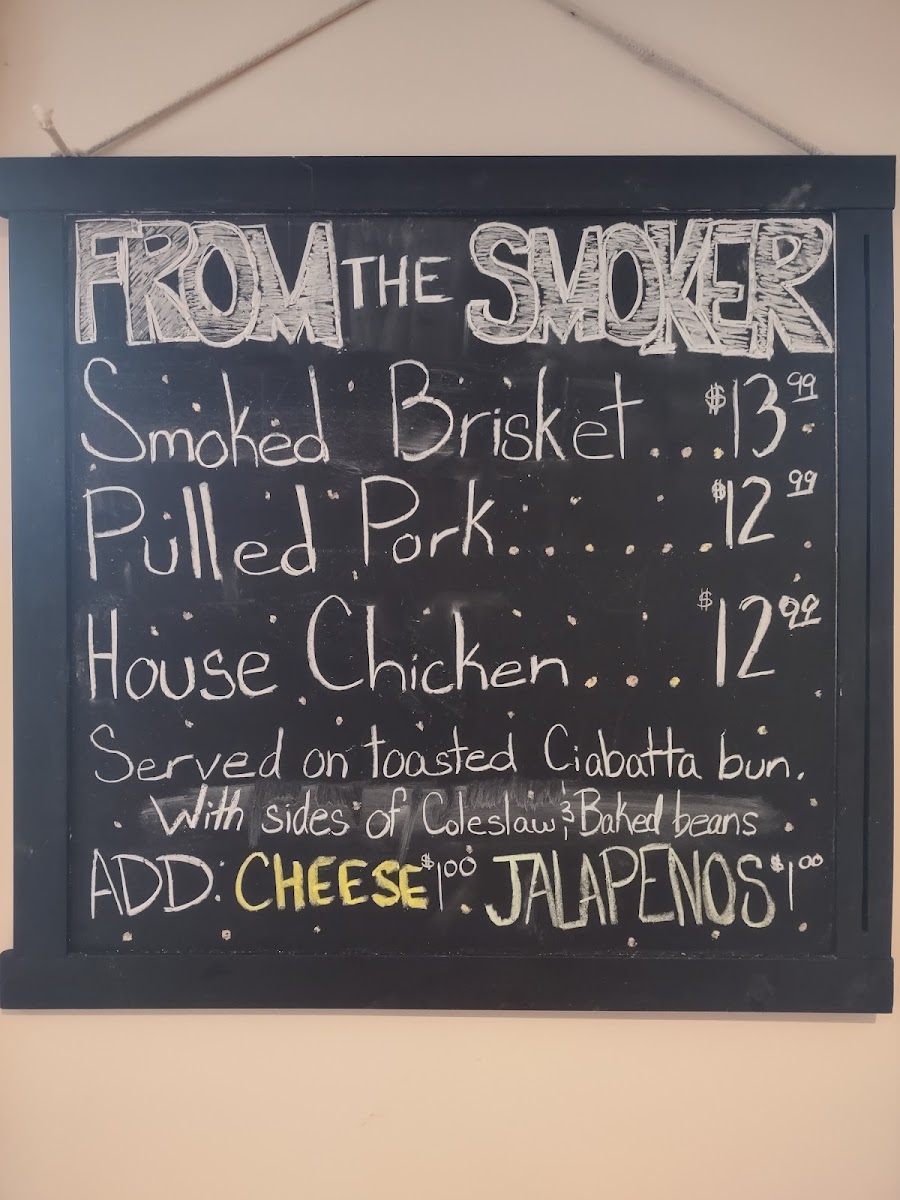 FROM THE SMOKER
Smoked Brisket....$13.99
Pulled Pork......$12.99
House Chicken....$12.99
Served on toasted Ciabatta bun.
With sides of Coleslaw & Baked beans
ADD: CHEESE $1.00. JALAPENOS $1.00